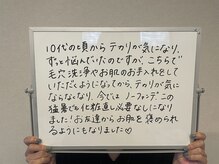 10代の頃からテカリが気になり、
ずっと悩んでいたのですが、こちらで
毛穴洗浄やお肌のお手入れをして
いただくようになってから、テカリが気に
ならなくなり、今では ノーファンデ この
猛暑でも化粧直し必要なしになり
ました！お友達からお肌を褒められ
るようにもなりました♡